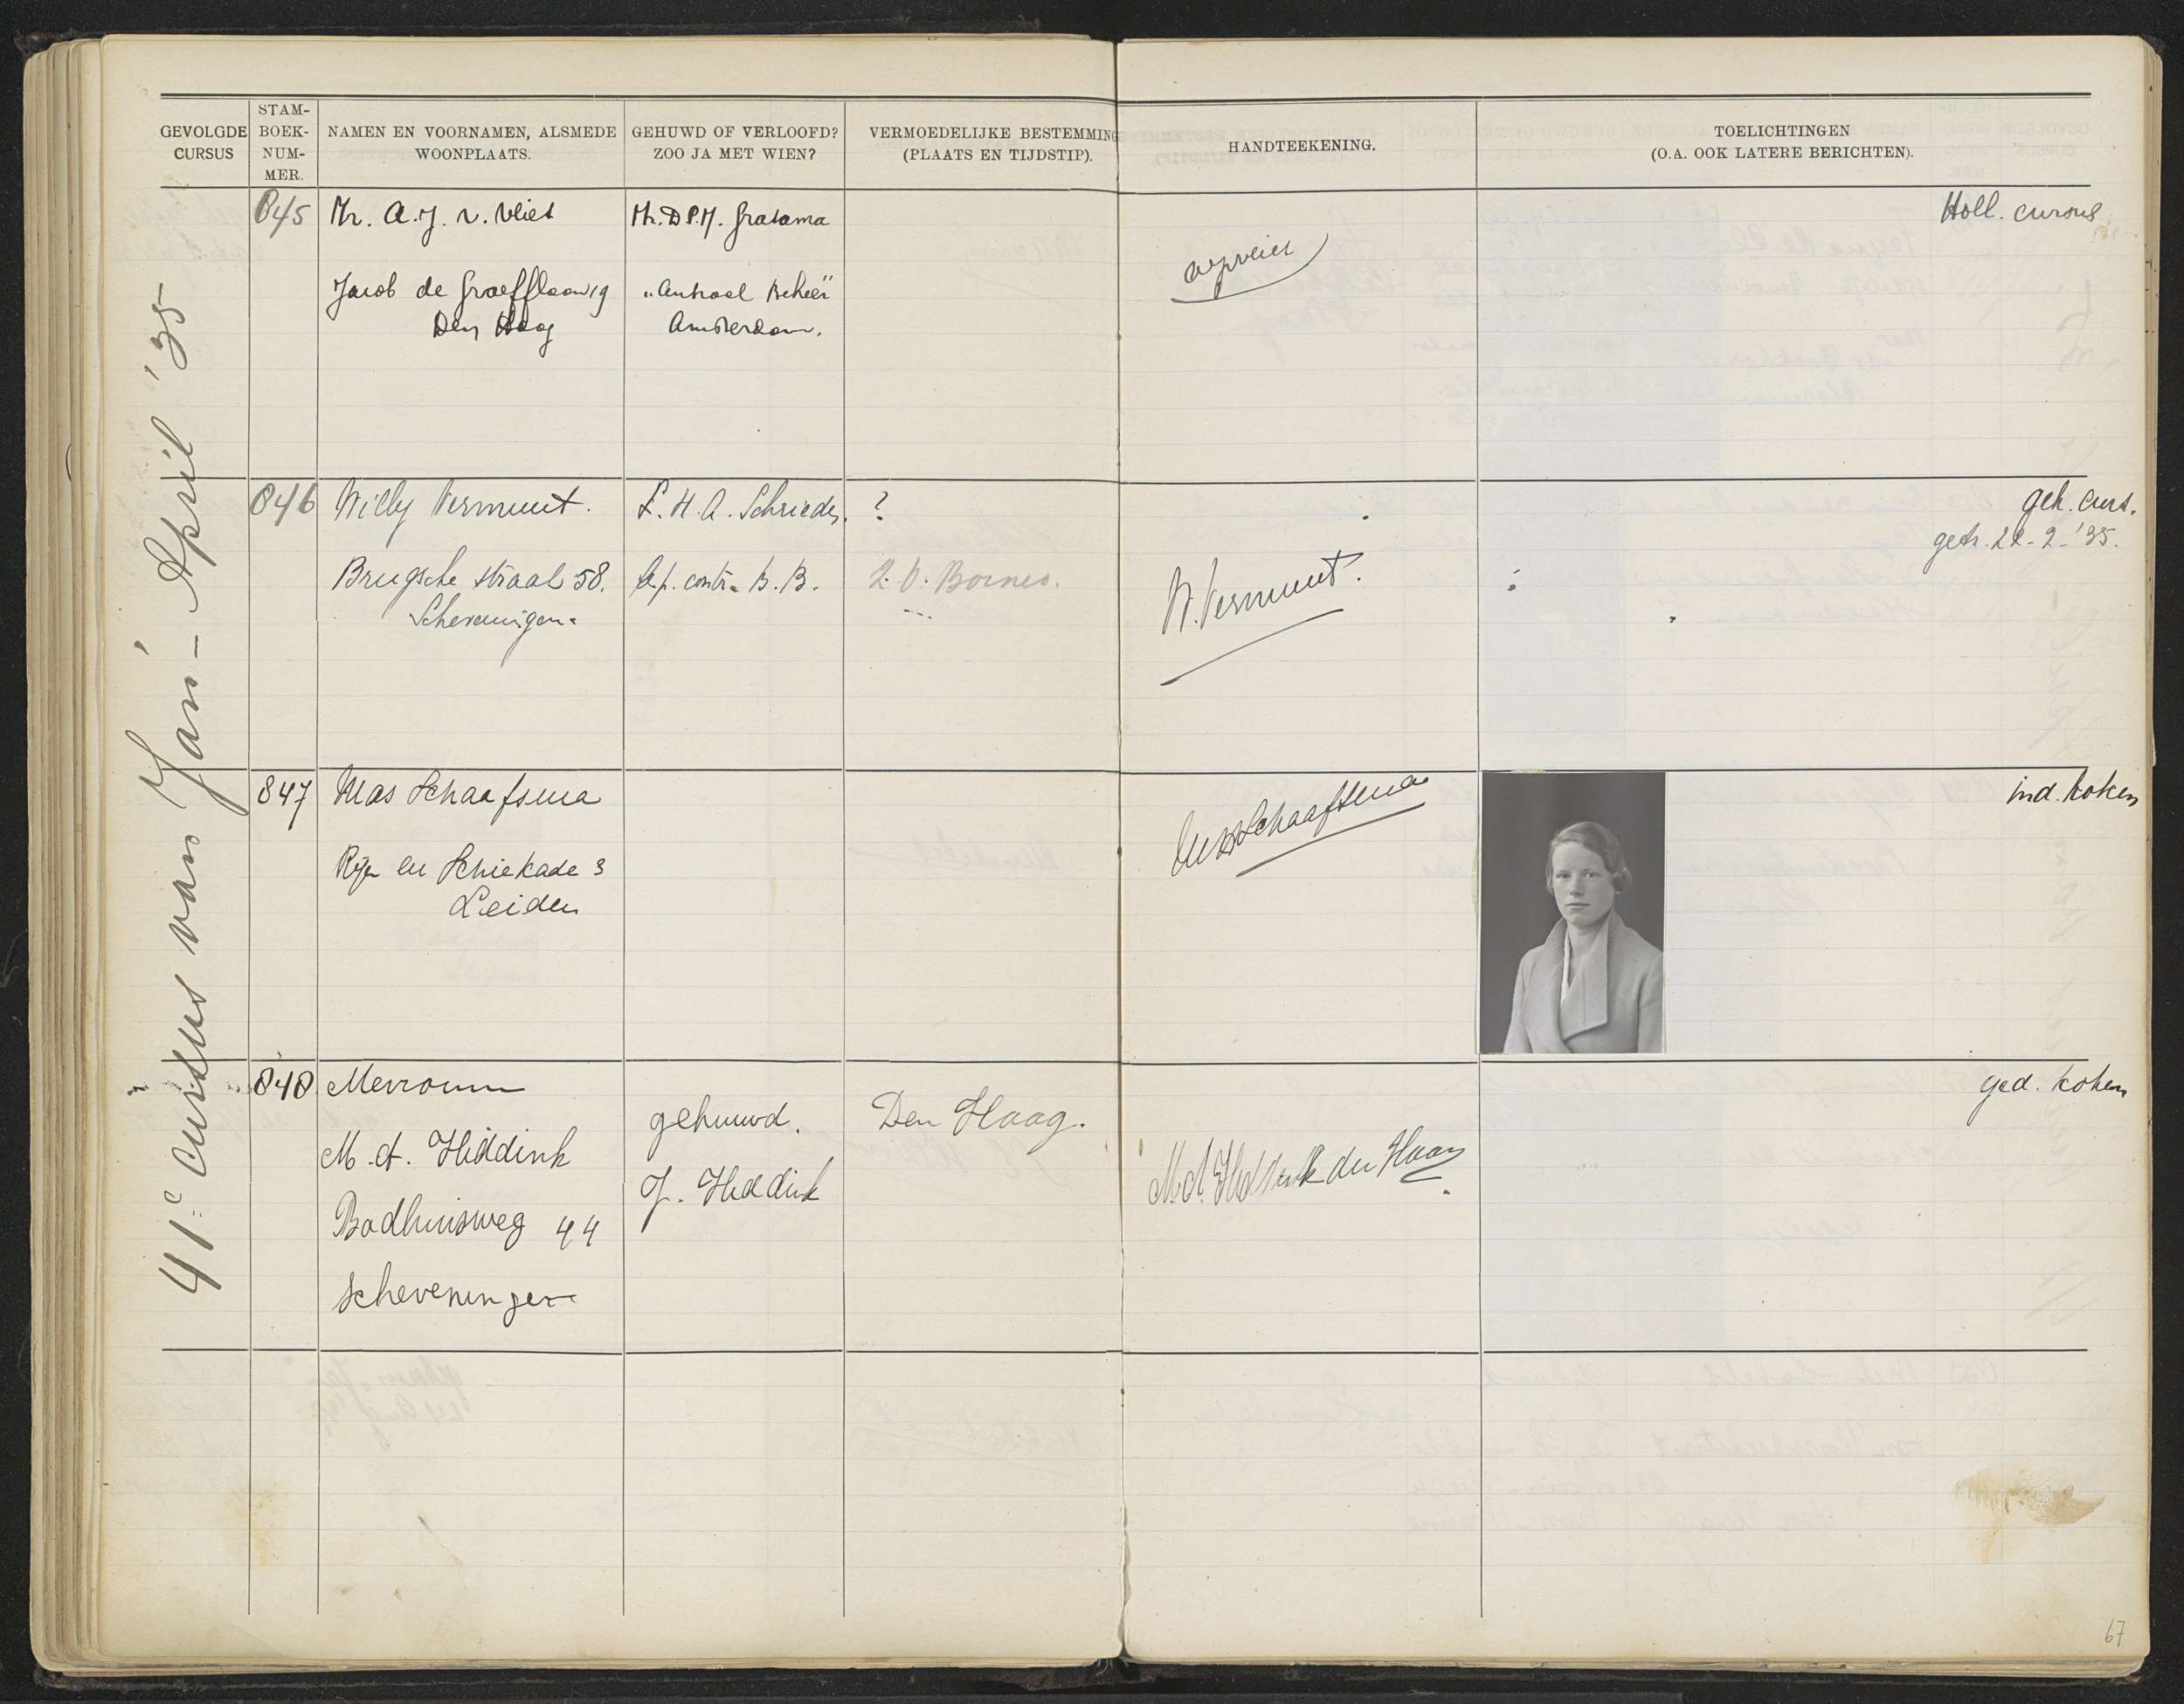 GEVOLGDE CURSUS
STAM-BOEK-NUM-MER.
NAMEN EN VOORNAMEN, ALSMEDE WOONPLAATS.
GEHUWD OF VERLOOFD? ZOO JA MET WIEN?
VERMOEDELIJKE BESTEMMING (PLAATS EN TIJDSTIP).
HANDTEEKENING.
TOELICHTINGEN (O.A. OOK LATERE BERICHTEN).
41e cursus van Jan - April '35
845
Mr. A.J. v. Vliet
Jacob de Graefflaan 19
Den Haag
Mr. D.P.M. Gratama
"Centraal Beheer"
Amsterdam.
Holl. cursus
846
Willy Vermunt.
Brugsche straat 58.
Scheveningen.
L. H. A. Schrieder.
B. B.
?
Z. O. Borneo.
W. Vermunt.
geh. curs.
getr. 22-2-'35.
847
Mas Schaafsma
Rijn en Schiekade 3
Leiden
Schaafsma
ind. koken
848
Mevrouw
M. A. Hiddink
Badhuisweg 44
Scheveningen
gehuwd.
J. Hiddink
Den Haag.
M.A. Hiddink den Haan
ged. koken
67